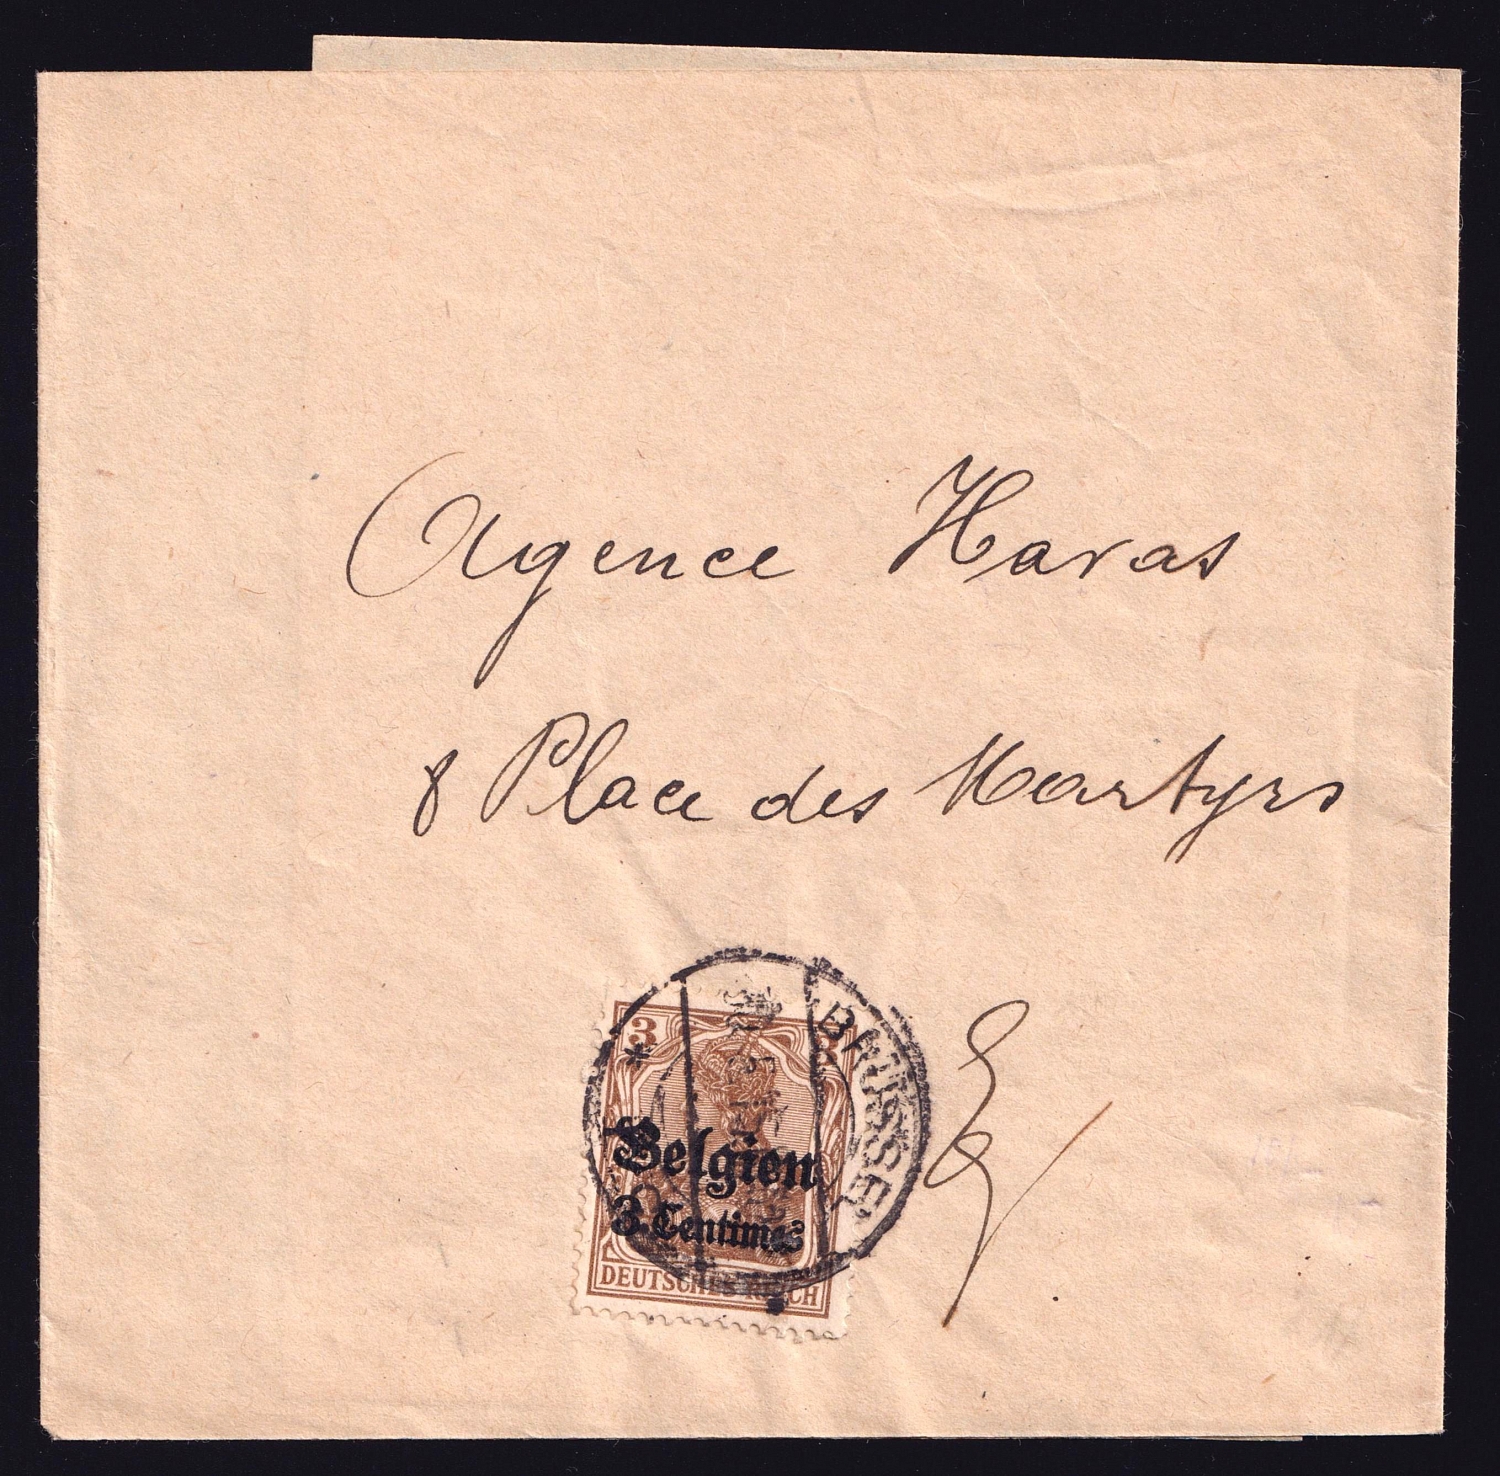 Agence Havas
8 Place des Martyrs
3
BRÜSSEL
Belgien
3 Centimes
DEUTSCHES REICH